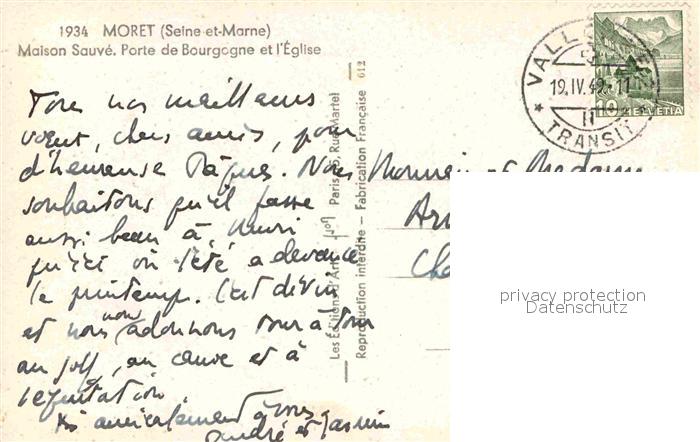 1934 MORET (Seine-et-Marne)
Maison Sauvé. Porte de Bourgogne et l'Église
Tous nos meilleurs
vœux, chers amis, pour
d'heureuse Pâques. Nous
souhaitons qu'il fasse
aussi beau à
qu'ici où l'été a devancé
le printemps. C'est divin
et nous nous adonnons tour à tour
au golf, au canoë et à
Très amicalement à vous
André et
Monsieur et Madame
Les Éditions d'Art Paris, 5, Rue Martel
Reproduction interdite - Fabrication Française
612
VALLO
19.IV.49.-11
II
TRANSIT
10 HELVETIA
privacy protection
Datenschutz